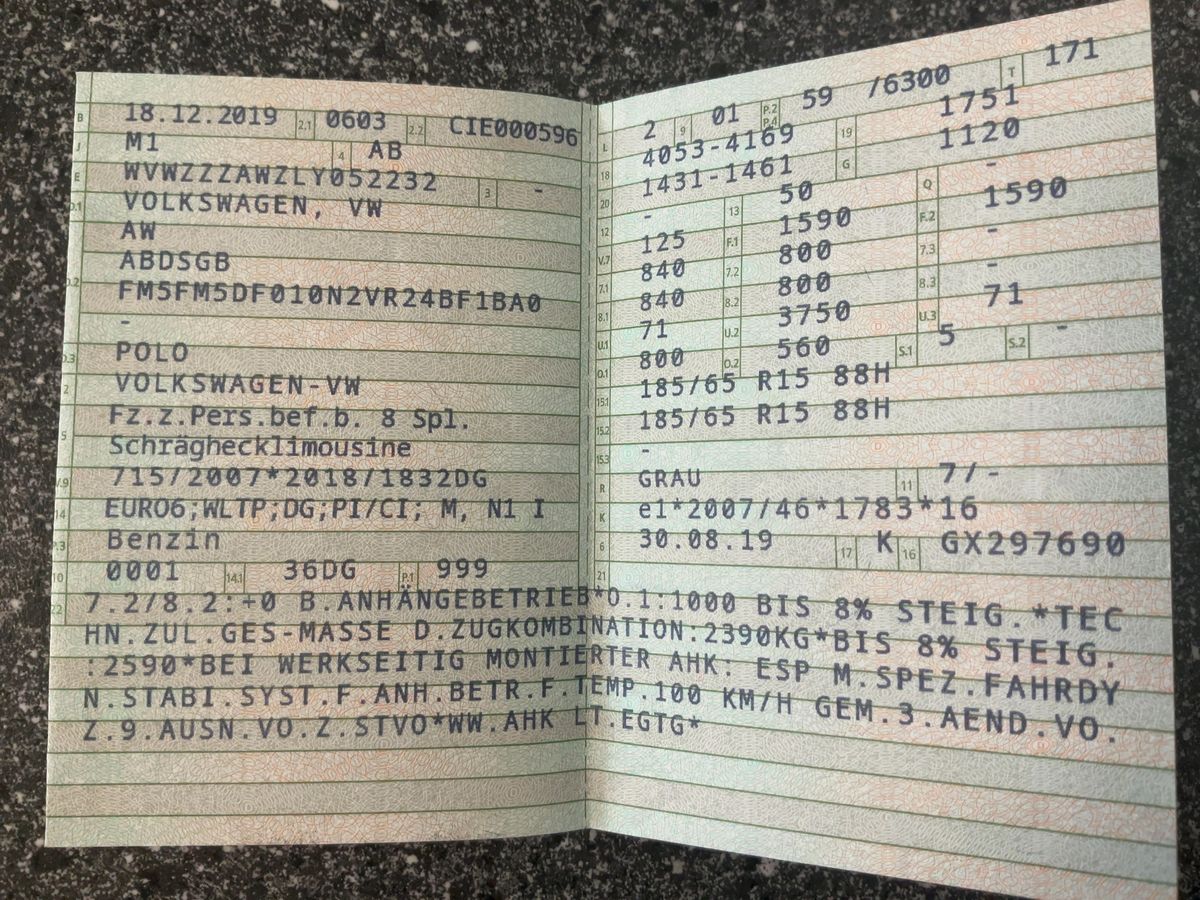 B 18.12.2019 2.1 0603 2.2 CIE000596
J M1 4 AB
E WVWZZZAWZLY052232 3 -
D.1 VOLKSWAGEN, VW
AW
D.2 ABDSGB
FM5FM5DF010N2VR24BF1BA0
-
D.3 POLO
2 VOLKSWAGEN-VW
5 Fz.z.Pers.bef.b. 8 Spl.
Schräghecklimousine
V.9 715/2007*2018/1832DG
14 EURO6;WLTP;DG;PI/CI; M, N1 I
P.3 Benzin
10 0001 14.1 36DG P.1 999
L 2 9 01 P.2 P.4 59 /6300 T 171
18 4053-4169 19 1751
20 1431-1461 G 1120
12 - 13 50 Q -
V.7 125 F.1 1590 F.2 1590
7.1 840 7.2 800 7.3 -
8.1 840 8.2 800 8.3 -
U.1 71 U.2 3750 U.3 71
O.1 800 O.2 560 S.1 5 S.2 -
15.1 185/65 R15 88H
15.2 185/65 R15 88H
15.3 -
R GRAU 11 7/-
K e1*2007/46*1783*16
6 30.08.19 17 K 16 GX297690
21
22 7.2/8.2:+0 B.ANHÄNGEBETRIEB*O.1:1000 BIS 8% STEIG.*TEC
HN.ZUL.GES-MASSE D.ZUGKOMBINATION:2390KG*BIS 8% STEIG.
:2590*BEI WERKSEITIG MONTIERTER AHK: ESP M.SPEZ.FAHRDY
N.STABI.SYST.F.ANH.BETR.F.TEMP.100 KM/H GEM.3.AEND.VO.
Z.9.AUSN.VO.Z.STVO*WW.AHK LT.EGTG*